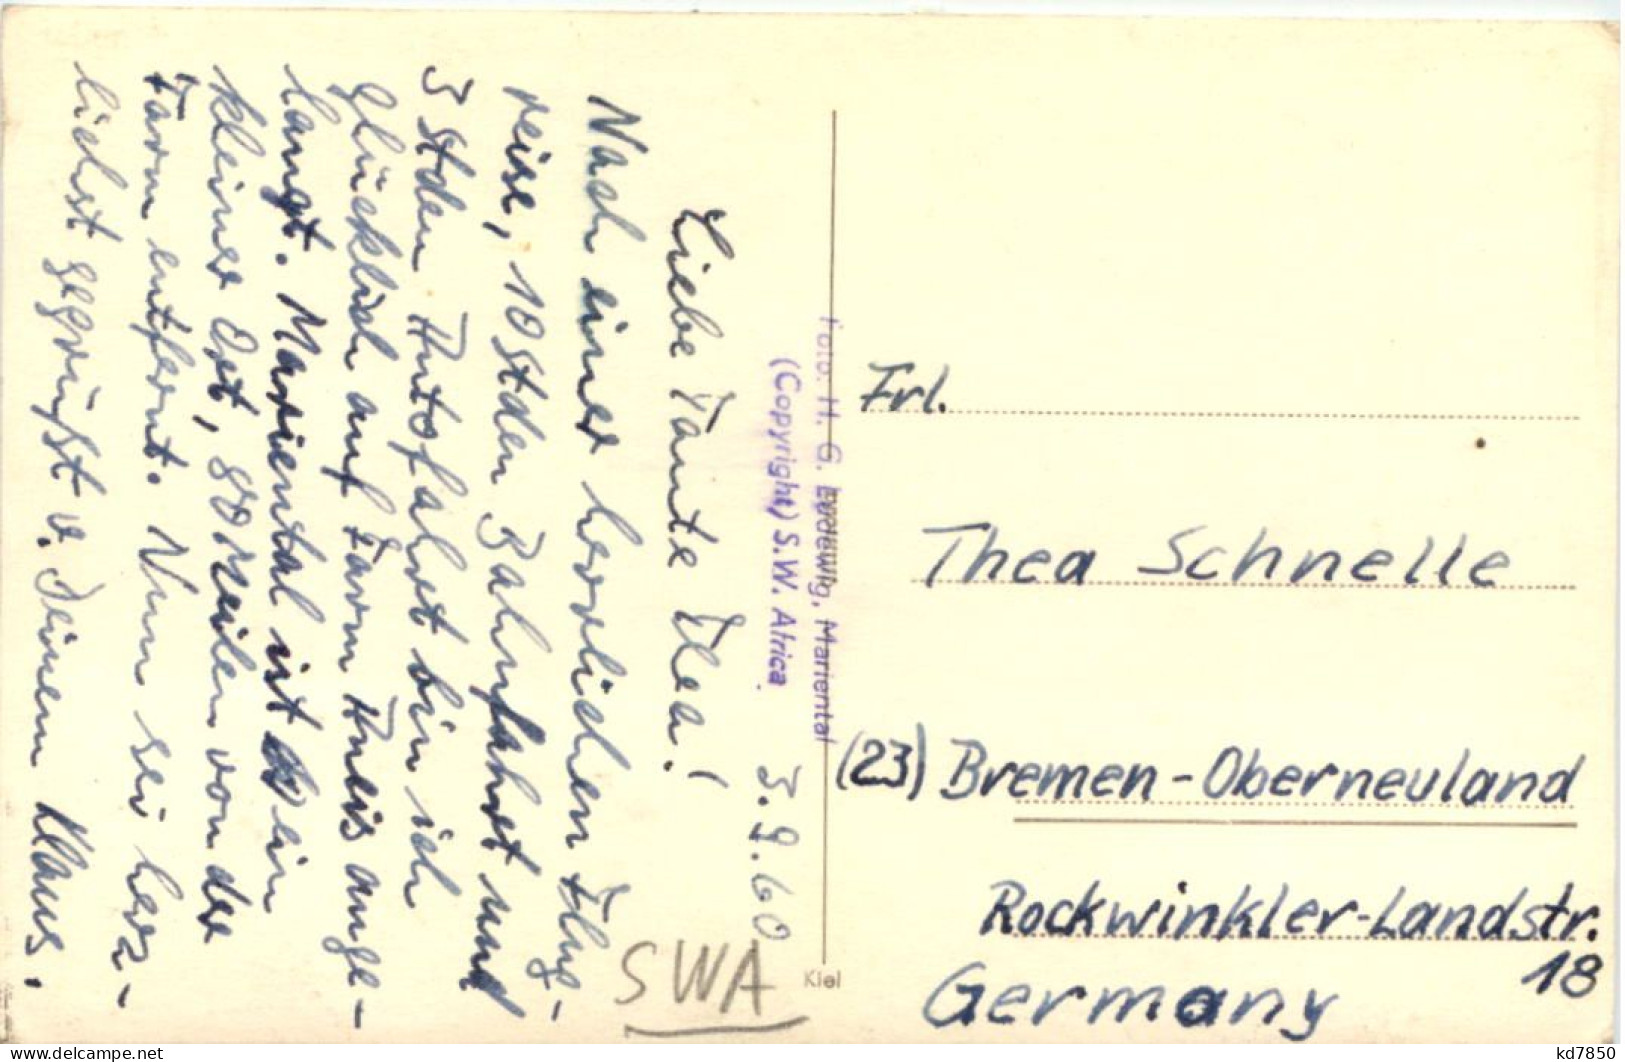 3.9.60
Liebe Tante Thea!
Nach einer herrlichen Flug-
reise, 10 Stden Bahnfahrt und
3 Stden Autofahrt bin ich
glücklich auf Farm Aneis ange-
langt. Mariental ist ein
kleiner Ort, 80 Meilen von der
Farm entfernt. Nun sei herz-
lichst gegrüßt v. Deinem Klaus.
Foto: H. G. Ludewig, Mariental
(Copyright) S.W. Africa
Kiel
SWA
Frl.
Thea Schnelle
(23) Bremen-Oberneuland
Rockwinkler-Landstr.
18
Germany
https://www.delcampe.net
kd7850